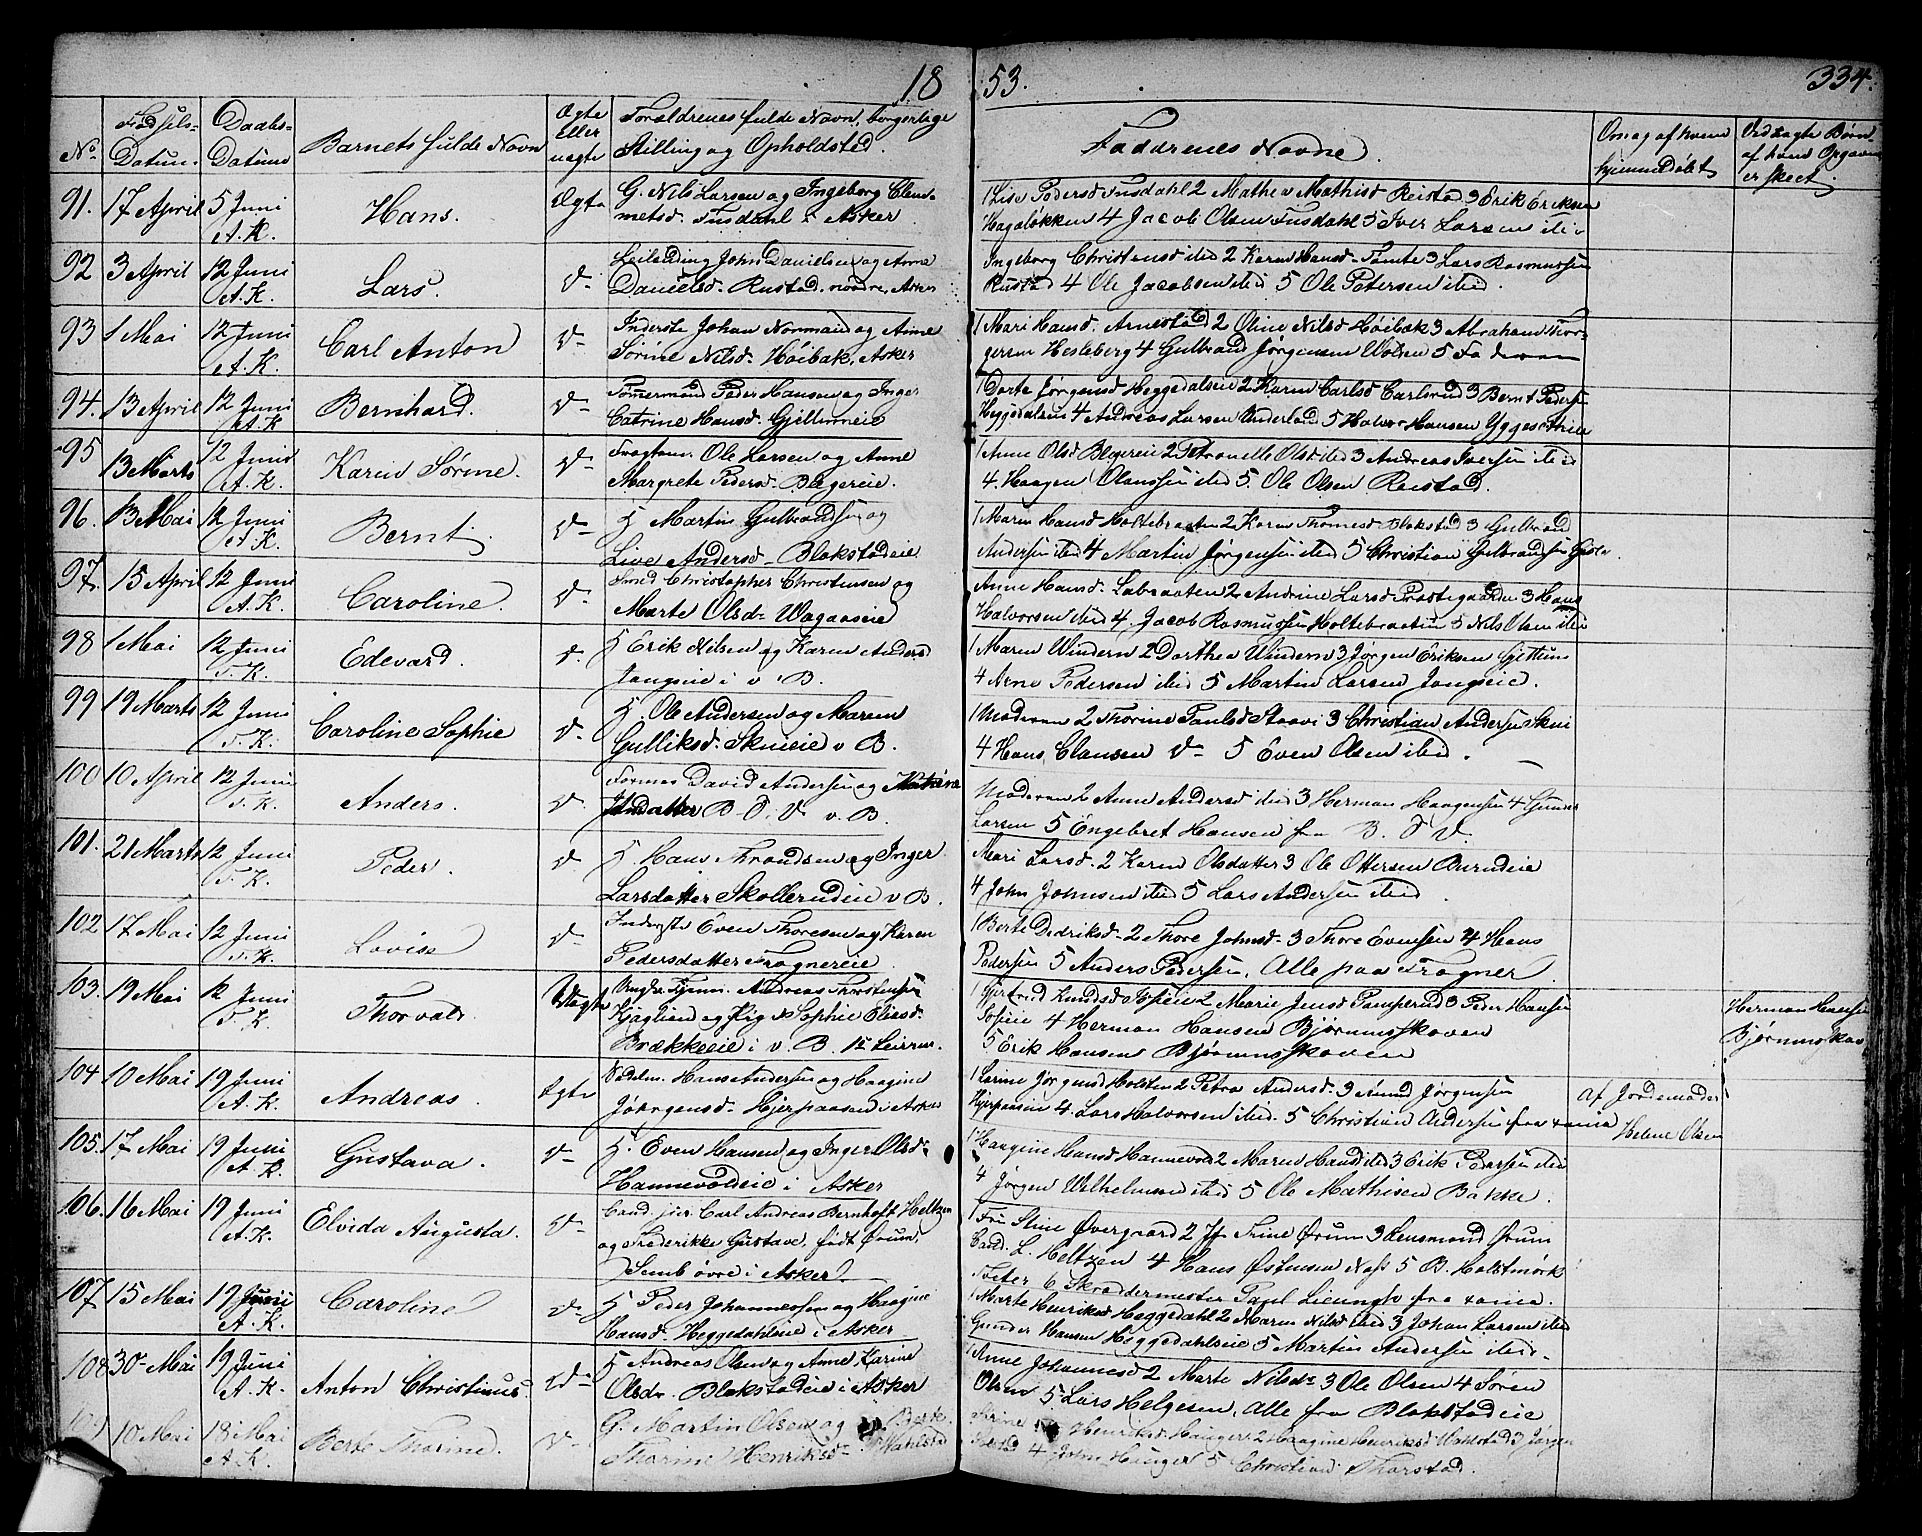 18 53. 334.
No. Fødsels-Datum. Daabs-Datum Barnets fulde Navn Ægte Eller uægte Forældrenes fulde Navn, borgerlige Stilling og Opholdsted. Faddrenes Navne. Om og af hvem hjemmeDøbt Ved uægte Børn af hvem Opgaven er skeet.
91. 17 April 5 Juni A.K. Hans. Ægte G. Nils Larsen og Ingeborg Clemmetsd. Fusdahl i Asker
1 Lise Pedersd Fusdahl 2 Mathea Mathisd Reistad 3 Erik Eriksen
Hagaløkken 4 Jacob Olsen Fusdahl 5 Iver Larsen
92 3 April 12 Juni A.K. Lars. Leilending John Danielsen og Anne
Danielsd. Rustad nordre, Asker
Ingeborg Christensd ibid 2 Karen Hansd. Tomte 3 Lars Rasmussen
Rustad 4 Ole Jacobsen ibid 5 Ole Petersen ibid.
93 1 Mai 12 Juni A.K. Carl Anton Inderste Johan Normand og Anne
Sørine Nilsd. Høibak, Asker
1 Mari Hansd. Arnestad 2 Oline Nilsd Høibak 3 Abraham Thorgersen Hesleberg 4 Gulbrand Jørgensen Wolsen 5 Faderen
94. 13 April 12 Juni A.K Bernhard. Tømermand Peder Hansen og Inger
Catrine Hansd. Gjellumeie
1 Dorte Jørgensd Heggedalseie 2 Karen Carlsd Carlsrud 3 Bernt Pedersen
4 Andreas Larsen Underland 5 Halvor Hansen
95 13 Marts 12 Juni A.K. Karen Sørine. Ole Larsen og Anne
Margrete Pedersd. Bøgereie.
1 Anne Olsd Bøgereie 2 Petronelle Olsd ibid 3 Andreas Iversen ibid
4. Haagen Olaussen ibid 5. Ole Olsen Reistad.
96. 13 Mai 12 Juni A.K. Bernt. Martin Gulbrandsen og
Live Andersd. Blakstadeie
1 Maren Hansd Holtebraaten 2 Karen Thomesd. Blakstad 3 Gulbrand
Andersen ibid 4 Martin Jørgensen ibid 5 Christian Gulbrandsen
97. 15 April 12 Juni A.K. Caroline. Smed Christopher Christensen og
Marte Olsdr Wøgaaseie
Anne Hansd. Labraaten 2 Andrine Larsd Prestegaarden 3 Hans
Halvorsen ibid 4. Jacob Rasmussen Holtebraaten 5 Nils Olsen ibid
98 1 Mai 12 Juni T.K. Edevard. Erik Nilsen og Karen Andersd
Tangeie i v. B.
1 Maren Windern 2 Dorthea Windern 3 Jørgen Eriksen Gjettum
4 Arne Pedersen ibid 5 Martin Larsen
99 19 Marts 12 Juni T.K. Caroline Sophie Ole Andersen og Maren
Gulliksd. Skuieie v B.
1 Moderen 2 Thorine Paulsd Staavi 3 Christian Andersen Skui
4 Hans Clausen 5 Even Olsen ibid.
100 10 April 12 Juni T.K. Anders. Former David Andersen og Kathrine
Jansdatter B. J. V. v. B.
Moderen 2 Anne Andersd ibid 3 Herman Haagensen 4 Gunder
Larsen 5 Engebret Hansen fra B. J V.
101. 21 Marts 12 Juni T.K. Peder. Hans Trondsen og Inger
Larsdatter Skollerudeie v B.
Mari Larsd. 2 Karen Olsdatter 3 Ole Ottersen Burudeie
4 John Johnsen ibid 5 Lars Andersen ibid
102 17 Mai 12 Juni T.K. Lovise Inderste Even Thoresen og Karen
Pedersdatter Fragnereie
1 Berte Dedriksd. 2 Thore Johnsd. 3 Thore Evensen 4 Hans
Pedersen 5 Anders Pedersen, Alle paa Fragner
103. 19 Mai 12 Juni T.K. Thorvald. Uægte Andreas Thorstensen
og Pige Sophie Eliasd.
Brækkeeie i v. B.
1 Gjertrud Knudsd Topeie 2 Marie Jensd Pamperud 3 Peder Hansen
4 Herman Hansen Bjørnnsskoven
5 Erik Hansen Bjørnnsskoven
Herman Hansen
Bjørnnsskov
104 10 Mai 19 Juni A.K. Andreas. Ægte Hans Andersen og Haagine
Jørgensd. Hjerpaasen i Asker
1 Karine Jørgensd Holsten 2 Petra Andersd. 3 Amund Jørgensen
4. Lars Halvorsen ibid. 5 Christian Andersen fra
af Jordemoder
Helene Olsen
105. 17 Mai 19 Juni A.K. Gustava. Even Hansen og Inger Olsd.
Hannevoldeie i Asker
1 Haagine Hansd Hannevold 2 Maren Hansd ibid 3 Erik Pedersen ibid
4 Jørgen Wilhelmsen ibid 5 Ole Mathisen Bakke.
106. 16 Mai 19 Juni A.K. Elvida Augusta. Cand. jur. Carl Andreas Bernhoft Heltzen
og Frederikke Gustave, født Ørum,
Semb øvre i Asker
1 Fru Stine Øvergaard 2 Jf Trine Ørum 3 Lensmand Ørum
Cand. L. Heltzen 4 Hans Østensen Næs 5 B. Holstmørk
6 Skreddermester Paul Lieungh fra
107 15 Mai 19 Juni A.K. Caroline Peder Johannessen og Haagine
Hansd. Heggedahleie i Asker
1 Marte Henriksd Heggedahl 2 Maren Nilsd ibid 3 Johan Larsen ibid
Gunder Hansen Heggedahlseie 5 Martin Andersen ibid.
108 30 Mai 19 Juni A.K. Anton Christinus. Andreas Olsen og Anne Karine
Olsdr. Blakstadeie i Asker
1 Anne Johannesd 2 Marte Nilsdr 3 Ole Olsen 4 Søren
Olsen 5 Lars Helgesen, Alle fra Blakstadeie
109 10 Mai 18 Mai A.K. Berte Thorine. G. Martin Olsen og Berte
Thorine Henriksd. Wahlstad
Henriksd Hauger 2 Haagine Henriksd Wahlstad 3 Jørgen
4 John Hauger 5 Christian Thorstad.